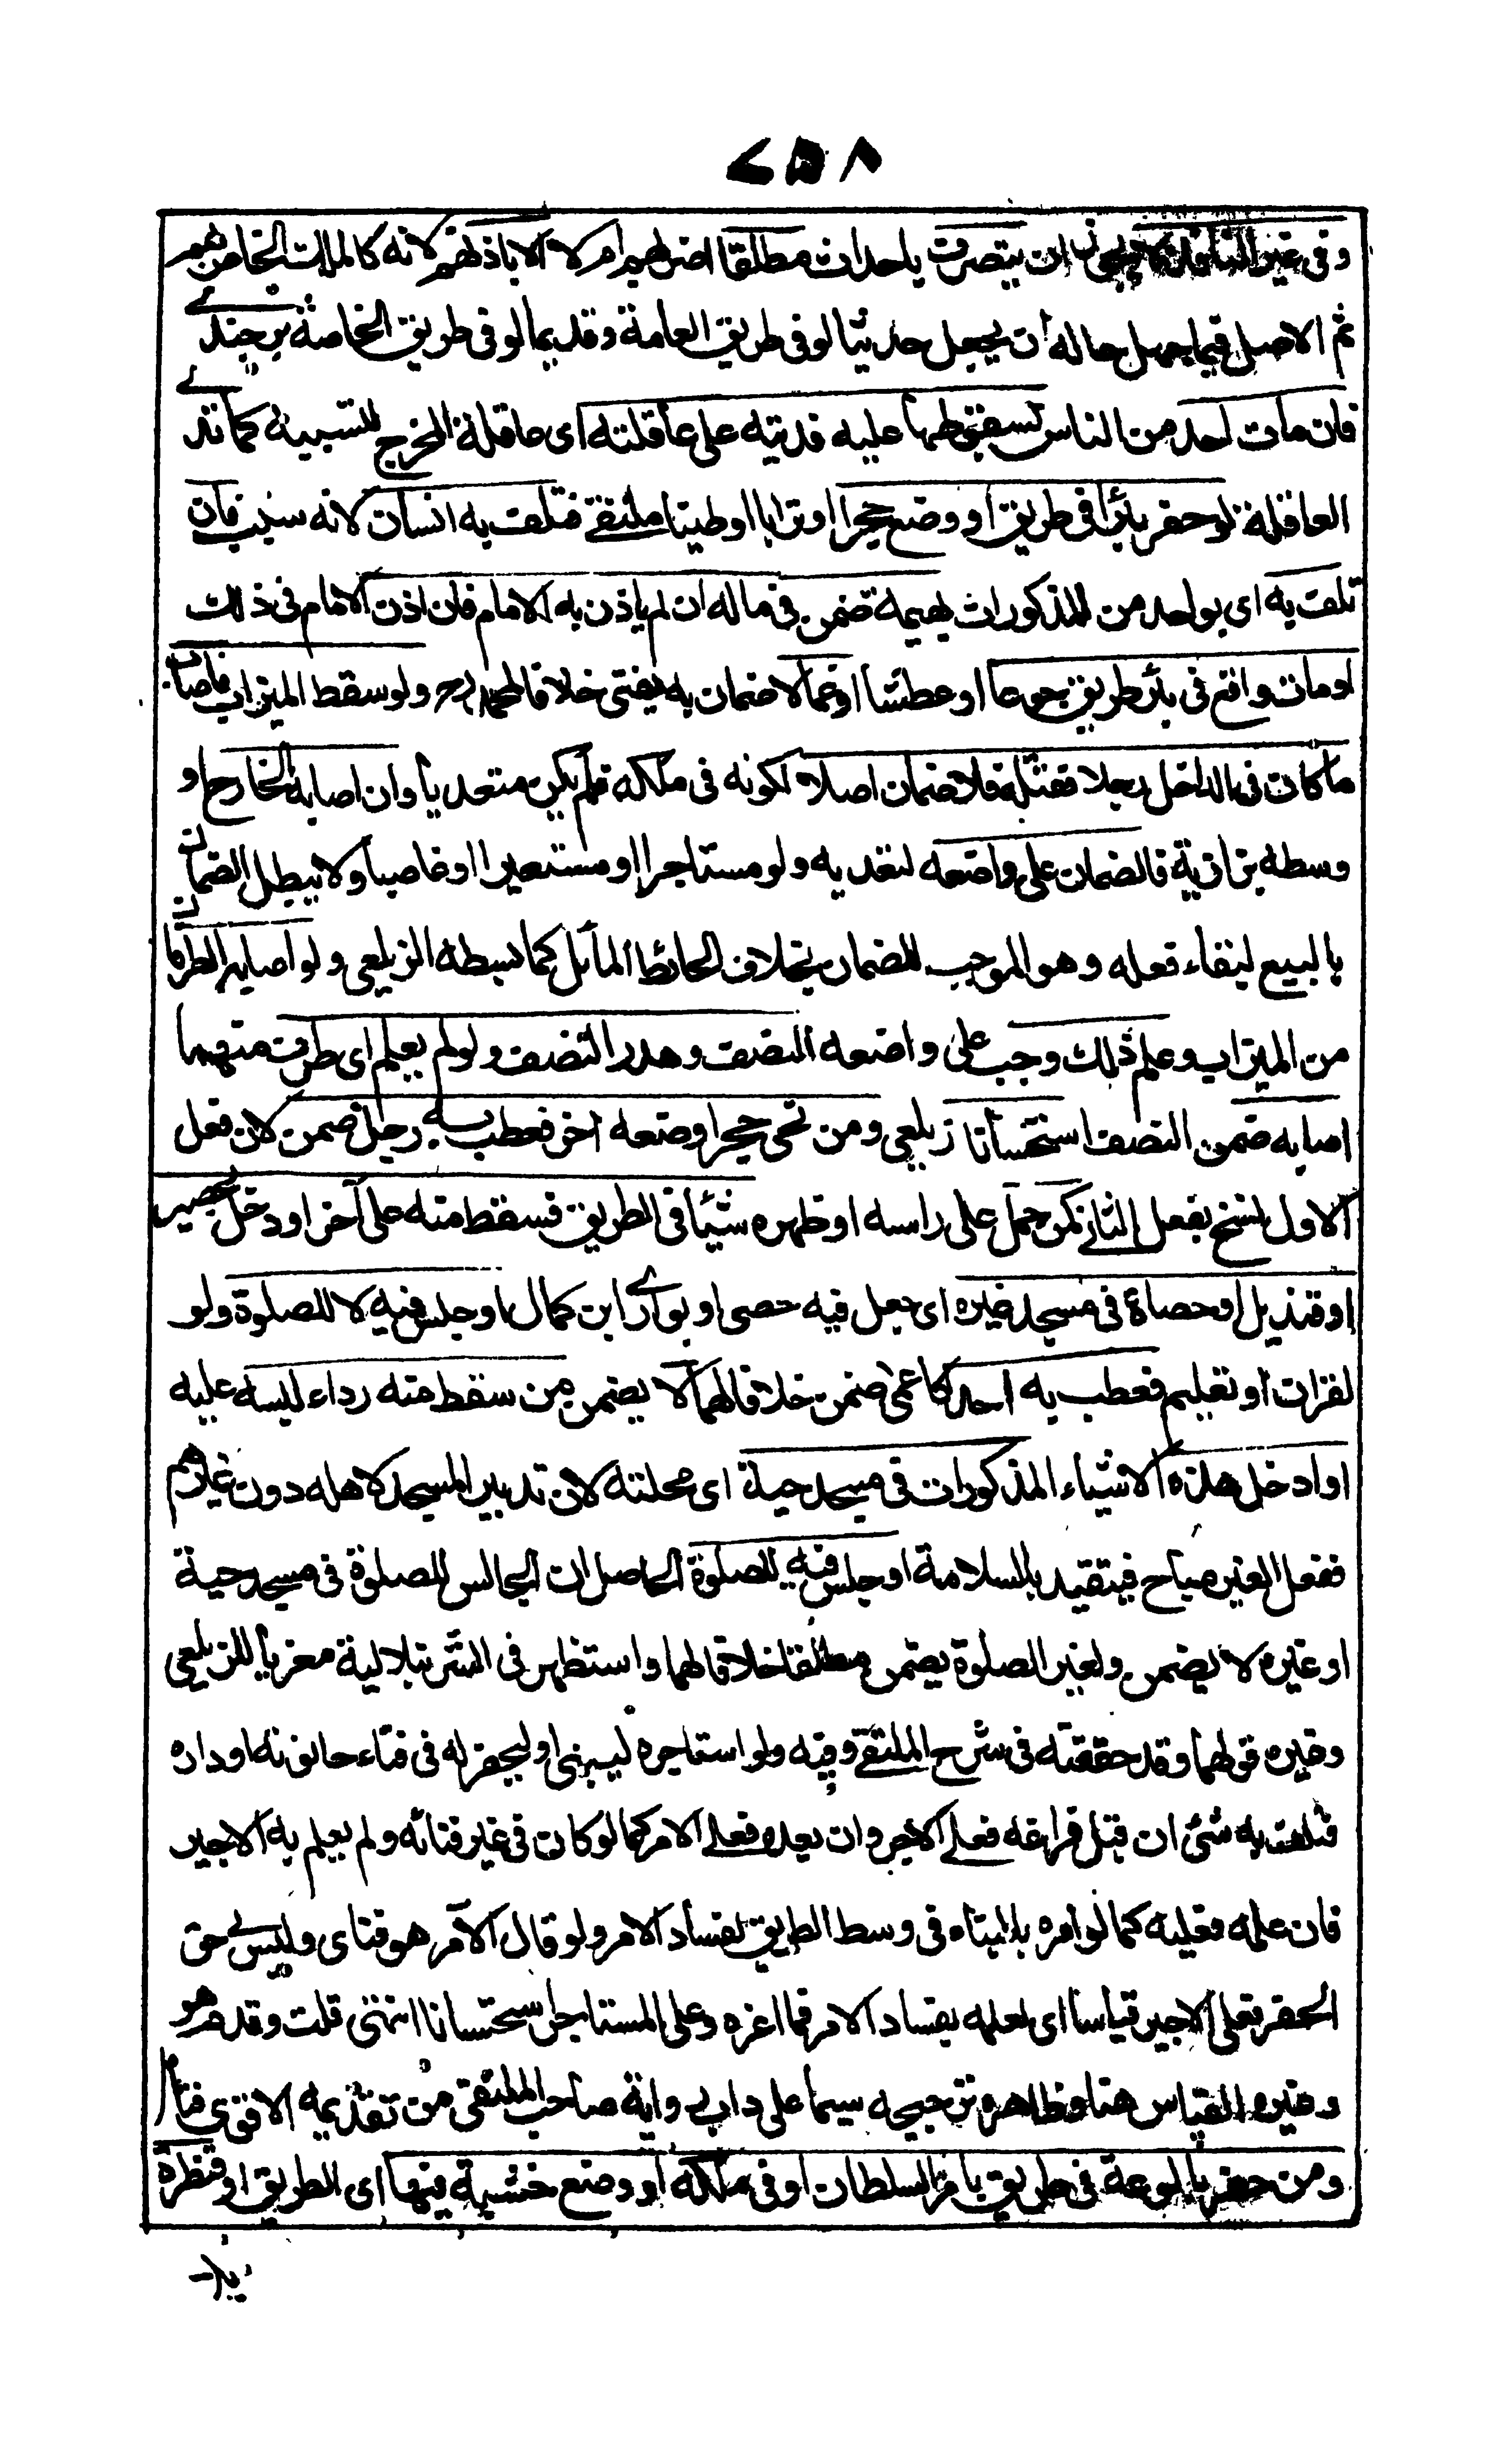 ٧٥٨
وفى غير النافذة لا يجوز ان يتصرف باحداث مطلقا اضر بهم ام لا الا باذنهم لانه كالملك الخاص بهم
ثم الاصل فيما جهل حاله ان يجعل حديثا لو فى طريق العامة وقديما لو فى طريق الخاصة برجندے
فان مات احد من الناس بسقوطها عليه فديته على عاقلته اى عاقلة المخرج لتسببه كما تدے
العاقلة لو حفر بئرا فى طريق او وضع حجرا او ترابا او طينا ملتقے فتلف به انسان لانه سبب فان
تلف به اى بواحد من المذكورات بهيمة ضمن فى ماله ان لم ياذن به الامام فان اذن الامام فى ذلك
او مات واقع فى بئر طريق جوعا او عطشا او غما لا ضمان به يفتى خلافا لمحمد رح ولو سقط الميزاب فاصاب
ما كان فى الداخل رجلا فقتله فلا ضمان اصلا لكونه فى ملكه فلم يكن متعديا وان اصابه الخارج او
وسطه بزازية فالضمان على واضعه لتعديه ولو مستاجرا او مستعيرا او غاصبا ولا يبطل الضمان
بالبيع لبقاء فعله وهو الموجب للضمان بخلاف الحائط المائل كما بسطه الزيلعى ولو اصابه الطرفان
من الميزاب وعلم ذلك وجب على واضعه النصف وهدر النصف ولو لم يعلم اى طرف منهما
اصابه ضمن النصف استحسانا زيلعى ومن نحى حجرا وضعه اخر فعطب به رجل ضمن لان فعل
الاول نسخ بفعل الثانے كمن حمل على راسه او ظهره شيئا فى الطريق فسقط منه على آخر او دخل بحصير
او قنديل او حصاة فى مسجد غيره اى جعل فيه حصى او بوارے ابن كمال او جلس فيه لا للصلوة ولو
لقران او تعليم فعطب به احد كاعمى ضمن خلافا لهما لا يضمن من سقط منه رداء لبسه عليه
او ادخل هذه الاشياء المذكورات فى مسجد حية اى محلته لان تدبير المسجد لاهله دون غيرهم
ففعل الغير مباح فيتقيد بالسلامة او جلس فيه للصلوة الحاصل ان الجالس للصلوة فى مسجد حية
او غيره لا يضمن ولغير الصلوة يضمن مطلقا خلافا لهما واستظهر فى الشرنبلالية معزيا للزيلعى
وغيره قولهما وقد حققته فى شرح الملتقے وفيه ولو استاجره ليبنى او ليحفر له فى فناء حانوته او داره
فتلف به شئ ان قبل فراغه فعلے الاجير وان بعده فعلے الامر كما لو كان فى غير فنائه ولم يعلم به الاجير
فان علمه فعليه كما لو امره بالبناء فى وسط الطريق لفساد الامر ولو قال الآمر هو فناى وليس لے حق
الحفر فعلى الاجير قياسا اى لعلمه بفساد الامر فما اغره وعلى المستاجر استحسانا انتهى قلت وقد مر هو
وغيره القياس هنا وظاهره ترجيحه سيما على داب رواية صاحب الملتقى من تقديمه الاقوى فتامل
ومن حفر بالوعة فى طريق بامر السلطان او فى ملكه او وضع خشبة فيها اى الطريق او قنطرة
بلا